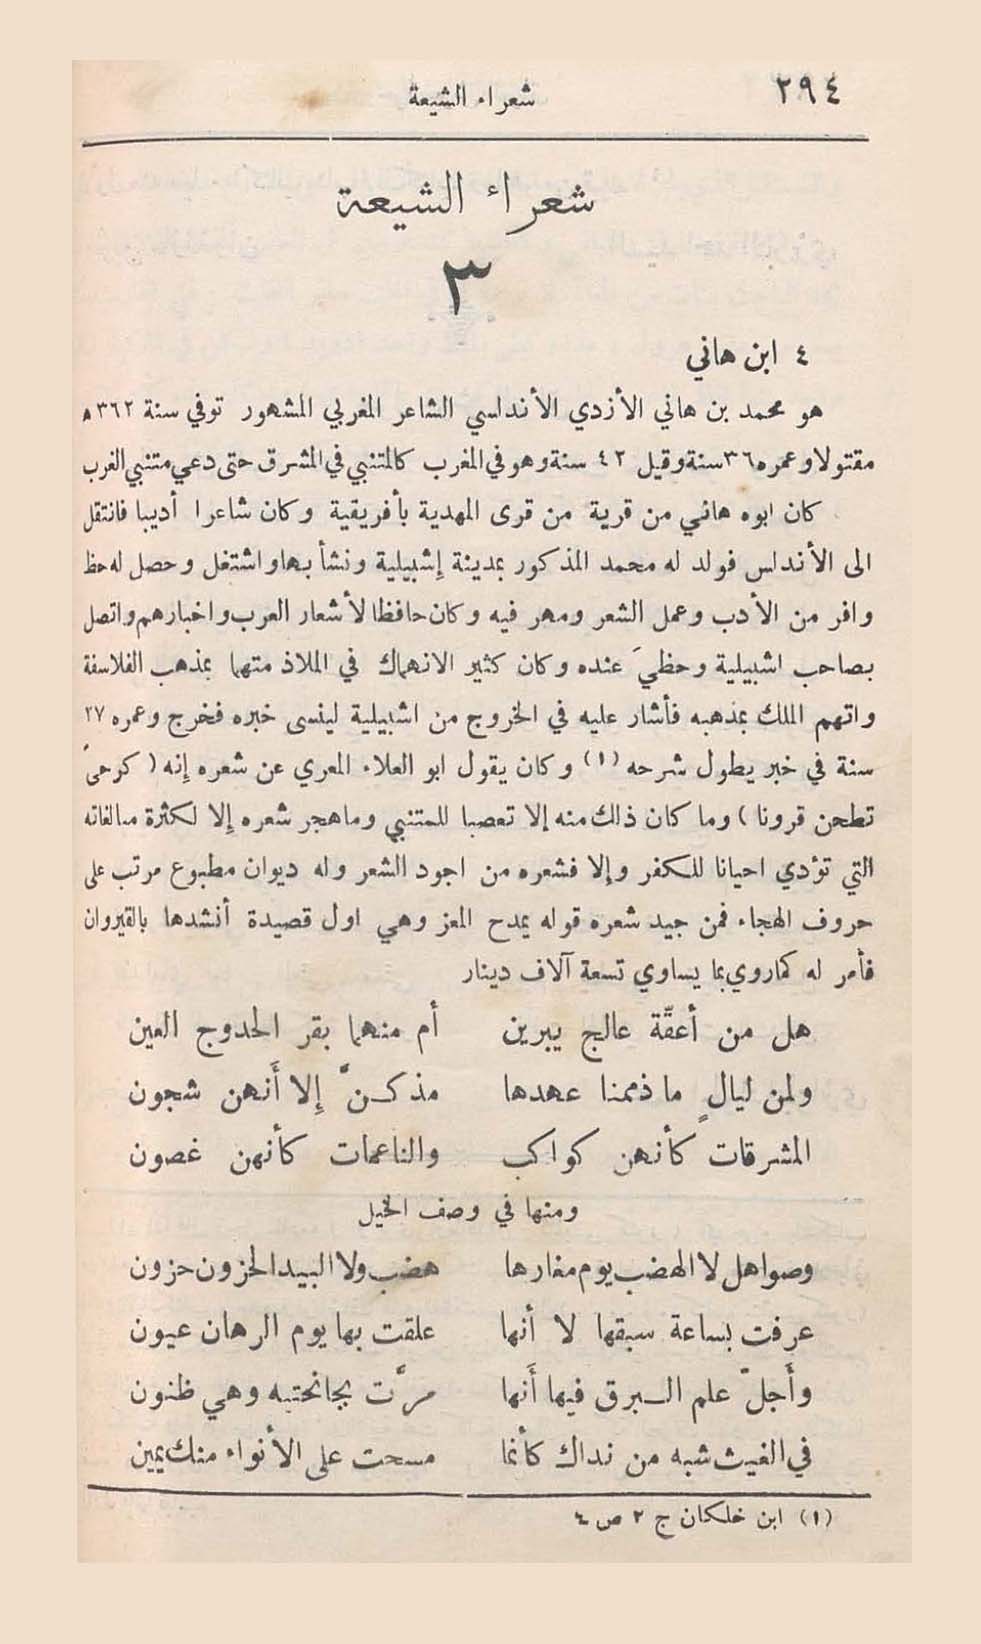 ٢٩٤
شعراء الشيعة
شعراء الشيعة
٣
٤ ابن هاني
هو محمد بن هاني الأزدي الأندلسي الشاعر المغربي المشهور توفي سنة ٣٦٢ ه
مقتولا وعمره ٣٦ سنة وقيل ٤٢ سنة وهو في المغرب كالمتنبي في المشرق حتى دعي متنبي الغرب
كان ابوه هاني من قرية من قرى المهدية بأفريقية وكان شاعرا أديبا فانتقل
الى الأندلس فولد له محمد المذكور بمدينة إشبيلية ونشأ بها واشتغل وحصل له حظ
وافر من الأدب وعمل الشعر ومهر فيه وكان حافظا لأشعار العرب واخبارهم واتصل
بصاحب اشبيلية وحظيَ عنده وكان كثير الانهماك في الملاذ متهما بمذهب الفلاسفة
واتهم الملك بمذهبه فأشار عليه في الخروج من اشبيلية لينسى خبره فخرج وعمره ٢٧
سنة في خبر يطول شرحه (١) وكان يقول ابو العلاء المعري عن شعره إنه ( كرحىً
تطحن قرونا ) وما كان ذلك منه إلا تعصبا للمتنبي وما هجر شعره إلا لكثرة مبالغاته
التي تؤدي احيانا للكفر وإلا فشعره من اجود الشعر وله ديوان مطبوع مرتب على
حروف الهجاء فمن جيد شعره قوله يمدح المعز وهي اول قصيدة أنشدها بالقيروان
فأمر له كما روي بما يساوي تسعة آلاف دينار
هل من أعقّة عالج يبرين أم منهما بقر الحدوج العين
ولمن ليالٍ ما ذممنا عهدها مذ كـنَّ إلا أَنهن شجون
المشرقات كأنهن كواكب والناعمات كأنهن غصون
ومنها في وصف الخيل
وصواهل لا الهضب يوم مغارها هضب ولا البيد الحزون حزون
عرفت بساعة سبقها لا أنها علقت بها يوم الرهان عيون
وأَجلّ علم الـبرق فيها أَنها مرَّت بجانحتيه وهي ظنون
في الغيث شبه من نداك كأنما مسحت على الأنواء منك يمين
(١) ابن خلكان ج ٢ ص ٤